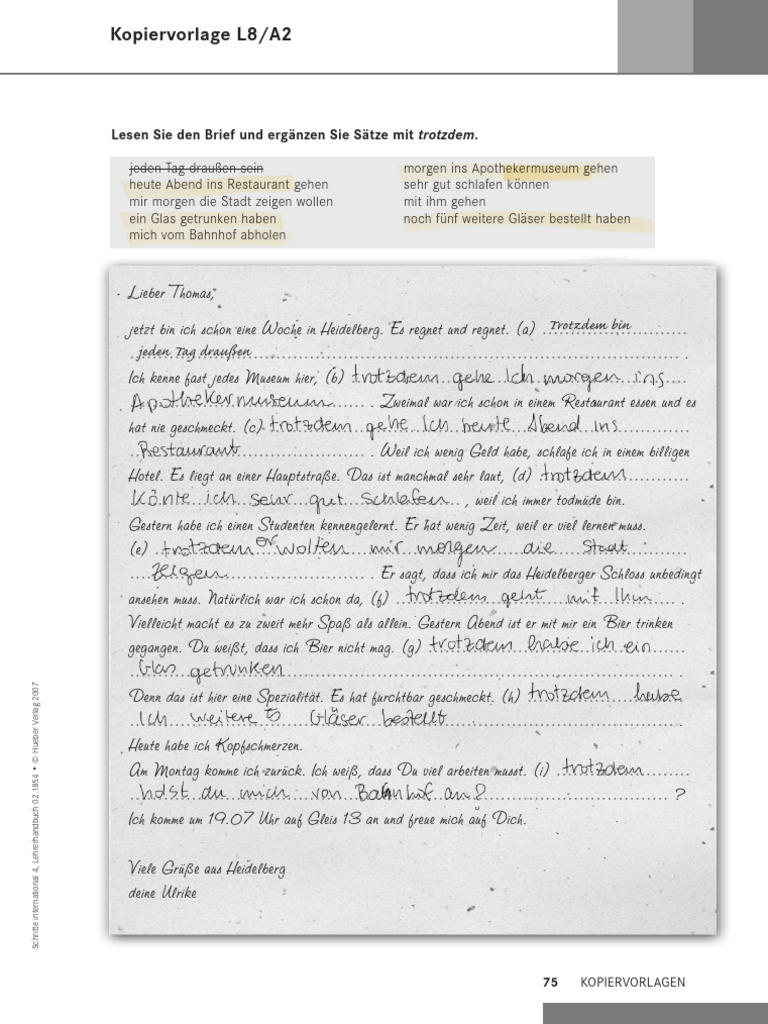 Kopiervorlage L8/A2
Lesen Sie den Brief und ergänzen Sie Sätze mit trotzdem.
jeden Tag draußen sein
heute Abend ins Restaurant gehen
mir morgen die Stadt zeigen wollen
ein Glas getrunken haben
mich vom Bahnhof abholen
morgen ins Apothekermuseum gehen
sehr gut schlafen können
mit ihm gehen
noch fünf weitere Gläser bestellt haben
Lieber Thomas,
jetzt bin ich schon eine Woche in Heidelberg. Es regnet und regnet. (a) Trotzdem bin
jeden Tag draußen.
Ich kenne fast jedes Museum hier, (b) trotzdem gehe Ich morgen ins
Apothekermuseum. Zweimal war ich schon in einem Restaurant essen und es
hat nie geschmeckt. (c) trotzdem gehe Ich heute Abend ins
Restaurant. Weil ich wenig Geld habe, schlafe ich in einem billigen
Hotel. Es liegt an einer Hauptstraße. Das ist manchmal sehr laut, (d) trotzdem
könte ich sehr gut schlafen, weil ich immer todmüde bin.
Gestern habe ich einen Studenten kennengelernt. Er hat wenig Zeit, weil er viel lernen muss.
(e) trotzdem er wolten mir morgen die Stadt
zeigen. Er sagt, dass ich mir das Heidelberger Schloss unbedingt
ansehen muss. Natürlich war ich schon da, (f) trotzdem geht mit Ihm.
Vielleicht macht es zu zweit mehr Spaß als allein. Gestern Abend ist er mit mir ein Bier trinken
gegangen. Du weißt, dass ich Bier nicht mag. (g) trotzdem habe ich ein
Glas getrunken.
Denn das ist hier eine Spezialität. Es hat furchtbar geschmeckt. (h) trotzdem habe
Ich weitere 5 Gläser bestellt.
Heute habe ich Kopfschmerzen.
Am Montag komme ich zurück. Ich weiß, dass Du viel arbeiten musst. (i) trotzdem
holst du mich von Bahnhof an? ?
Ich komme um 19.07 Uhr auf Gleis 13 an und freue mich auf Dich.
Viele Grüße aus Heidelberg
deine Ulrike
Schritte international 4, Lehrerhandbuch 02.1854 • © Hueber Verlag 2007
75 KOPIERVORLAGEN